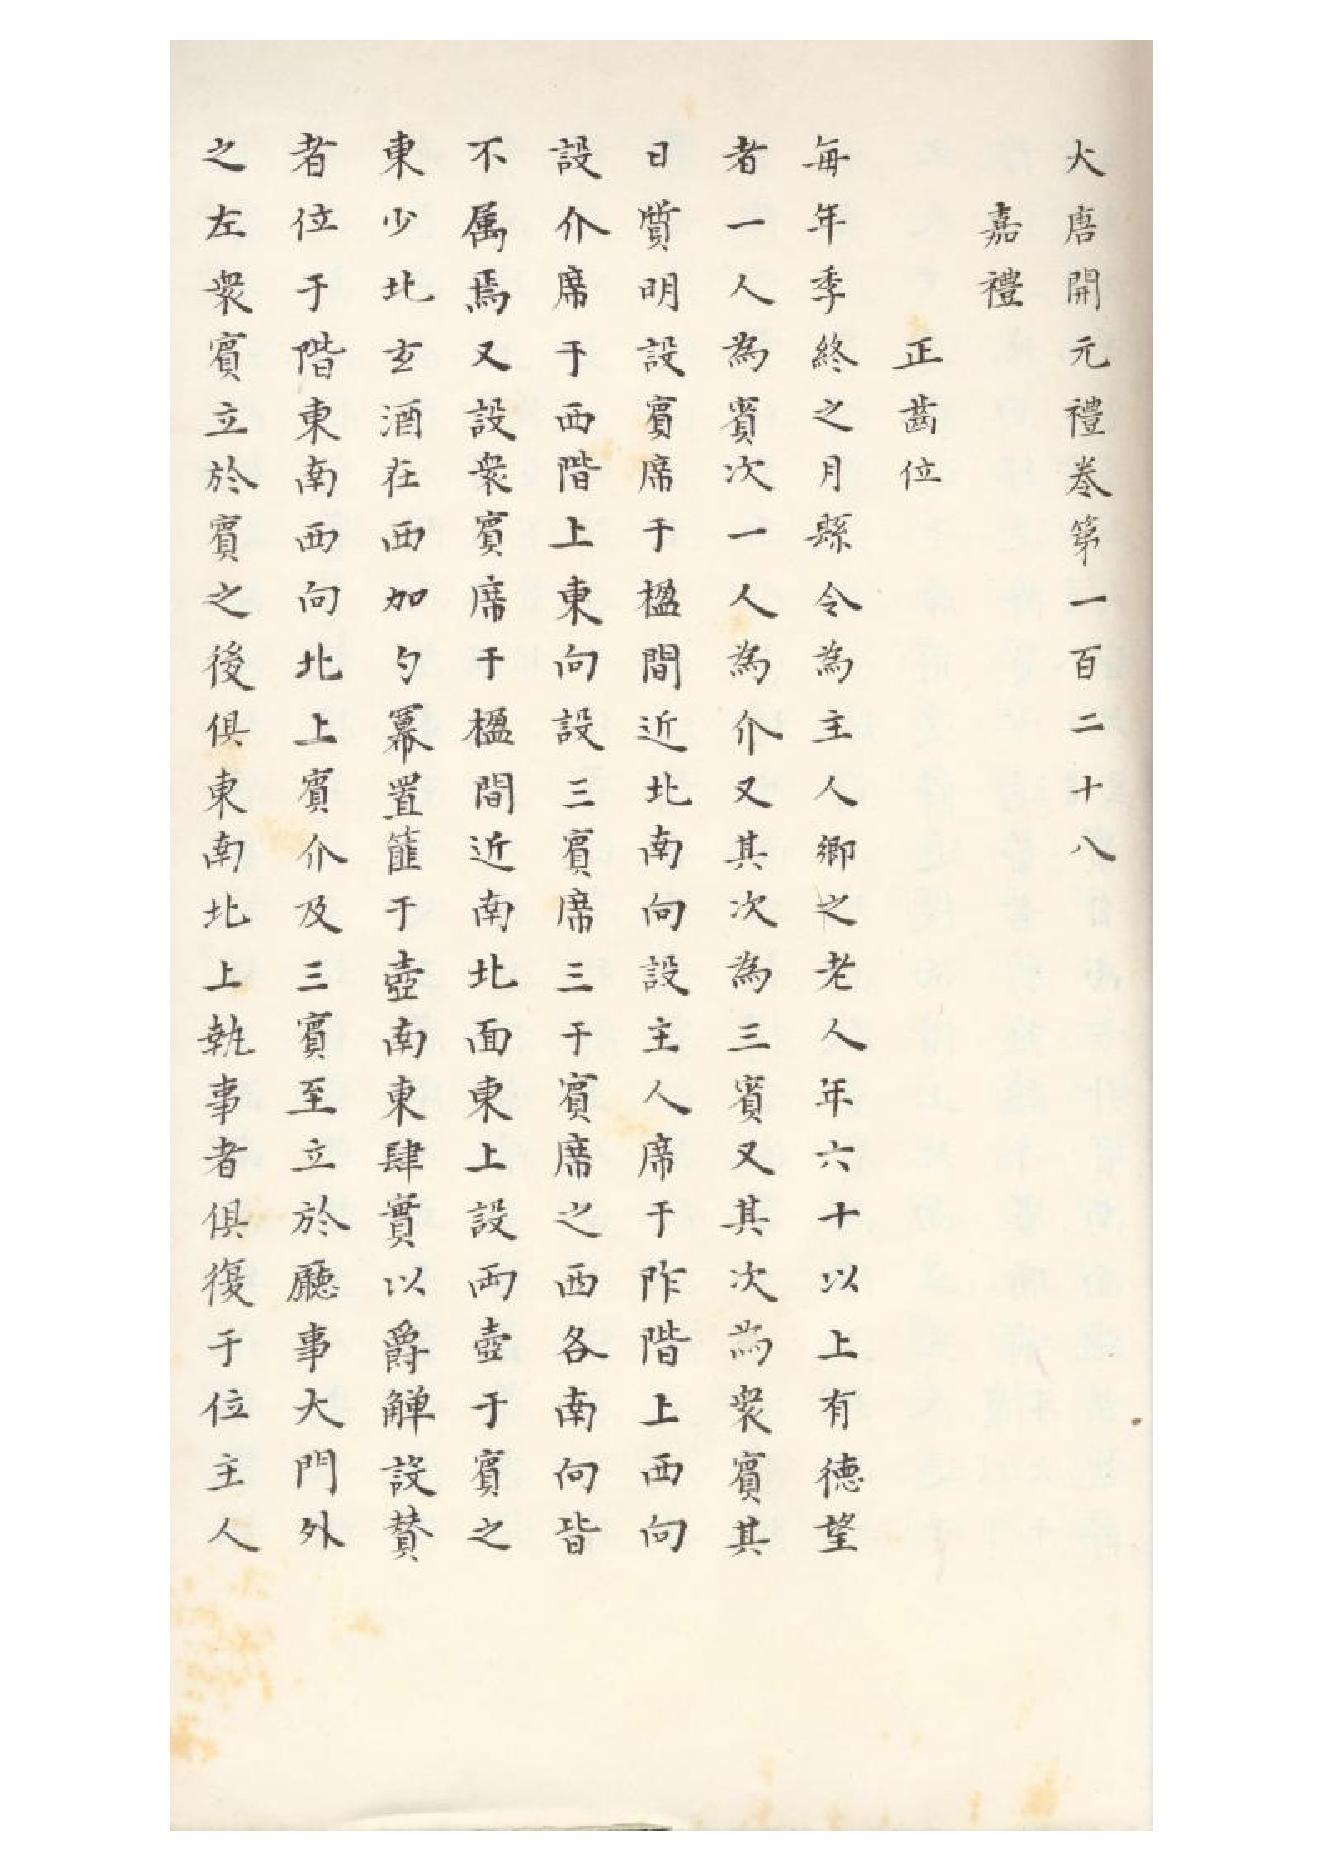 大唐開元禮卷第一百二十八
嘉禮
正齒位
每年季終之月縣令為主人鄉之老人年六十以上有德望
者一人為賓次一人為介又其次為三賓又其次為衆賓其
日質明設賓席于楹間近北南向設主人席于阼階上西向
設介席于西階上東向設三賓席三于賓席之西各南向皆
不属焉又設衆賓席于楹間近南北面東上設兩壺于賓之
東少北玄酒在西加勺冪置篚于壺南東肆實以爵觶設贊
者位于階東南西向北上賓介及三賓至立於廳事大門外
之左衆賓立於賓之後俱東南北上執事者俱復于位主人